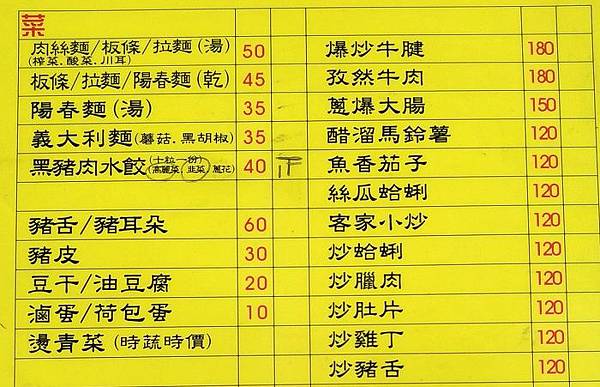 菜
肉絲麵/板條/拉麵(湯) 50
(榨菜.酸菜.川耳)
板條/拉麵/陽春麵(乾) 45
陽春麵(湯) 35
義大利麵(蘑菇.黑胡椒) 35
黑豬肉水餃(十粒一份) 40
(高麗菜.韭菜.蔥花)
豬舌/豬耳朵 60
豬皮 30
豆干/油豆腐 20
滷蛋/荷包蛋 10
燙青菜(時蔬時價)
爆炒牛腱 180
孜然牛肉 180
蔥爆大腸 150
醋溜馬鈴薯 120
魚香茄子 120
絲瓜蛤蜊 120
客家小炒 120
炒蛤蜊 120
炒臘肉 120
炒肚片 120
炒雞丁 120
炒豬舌 120